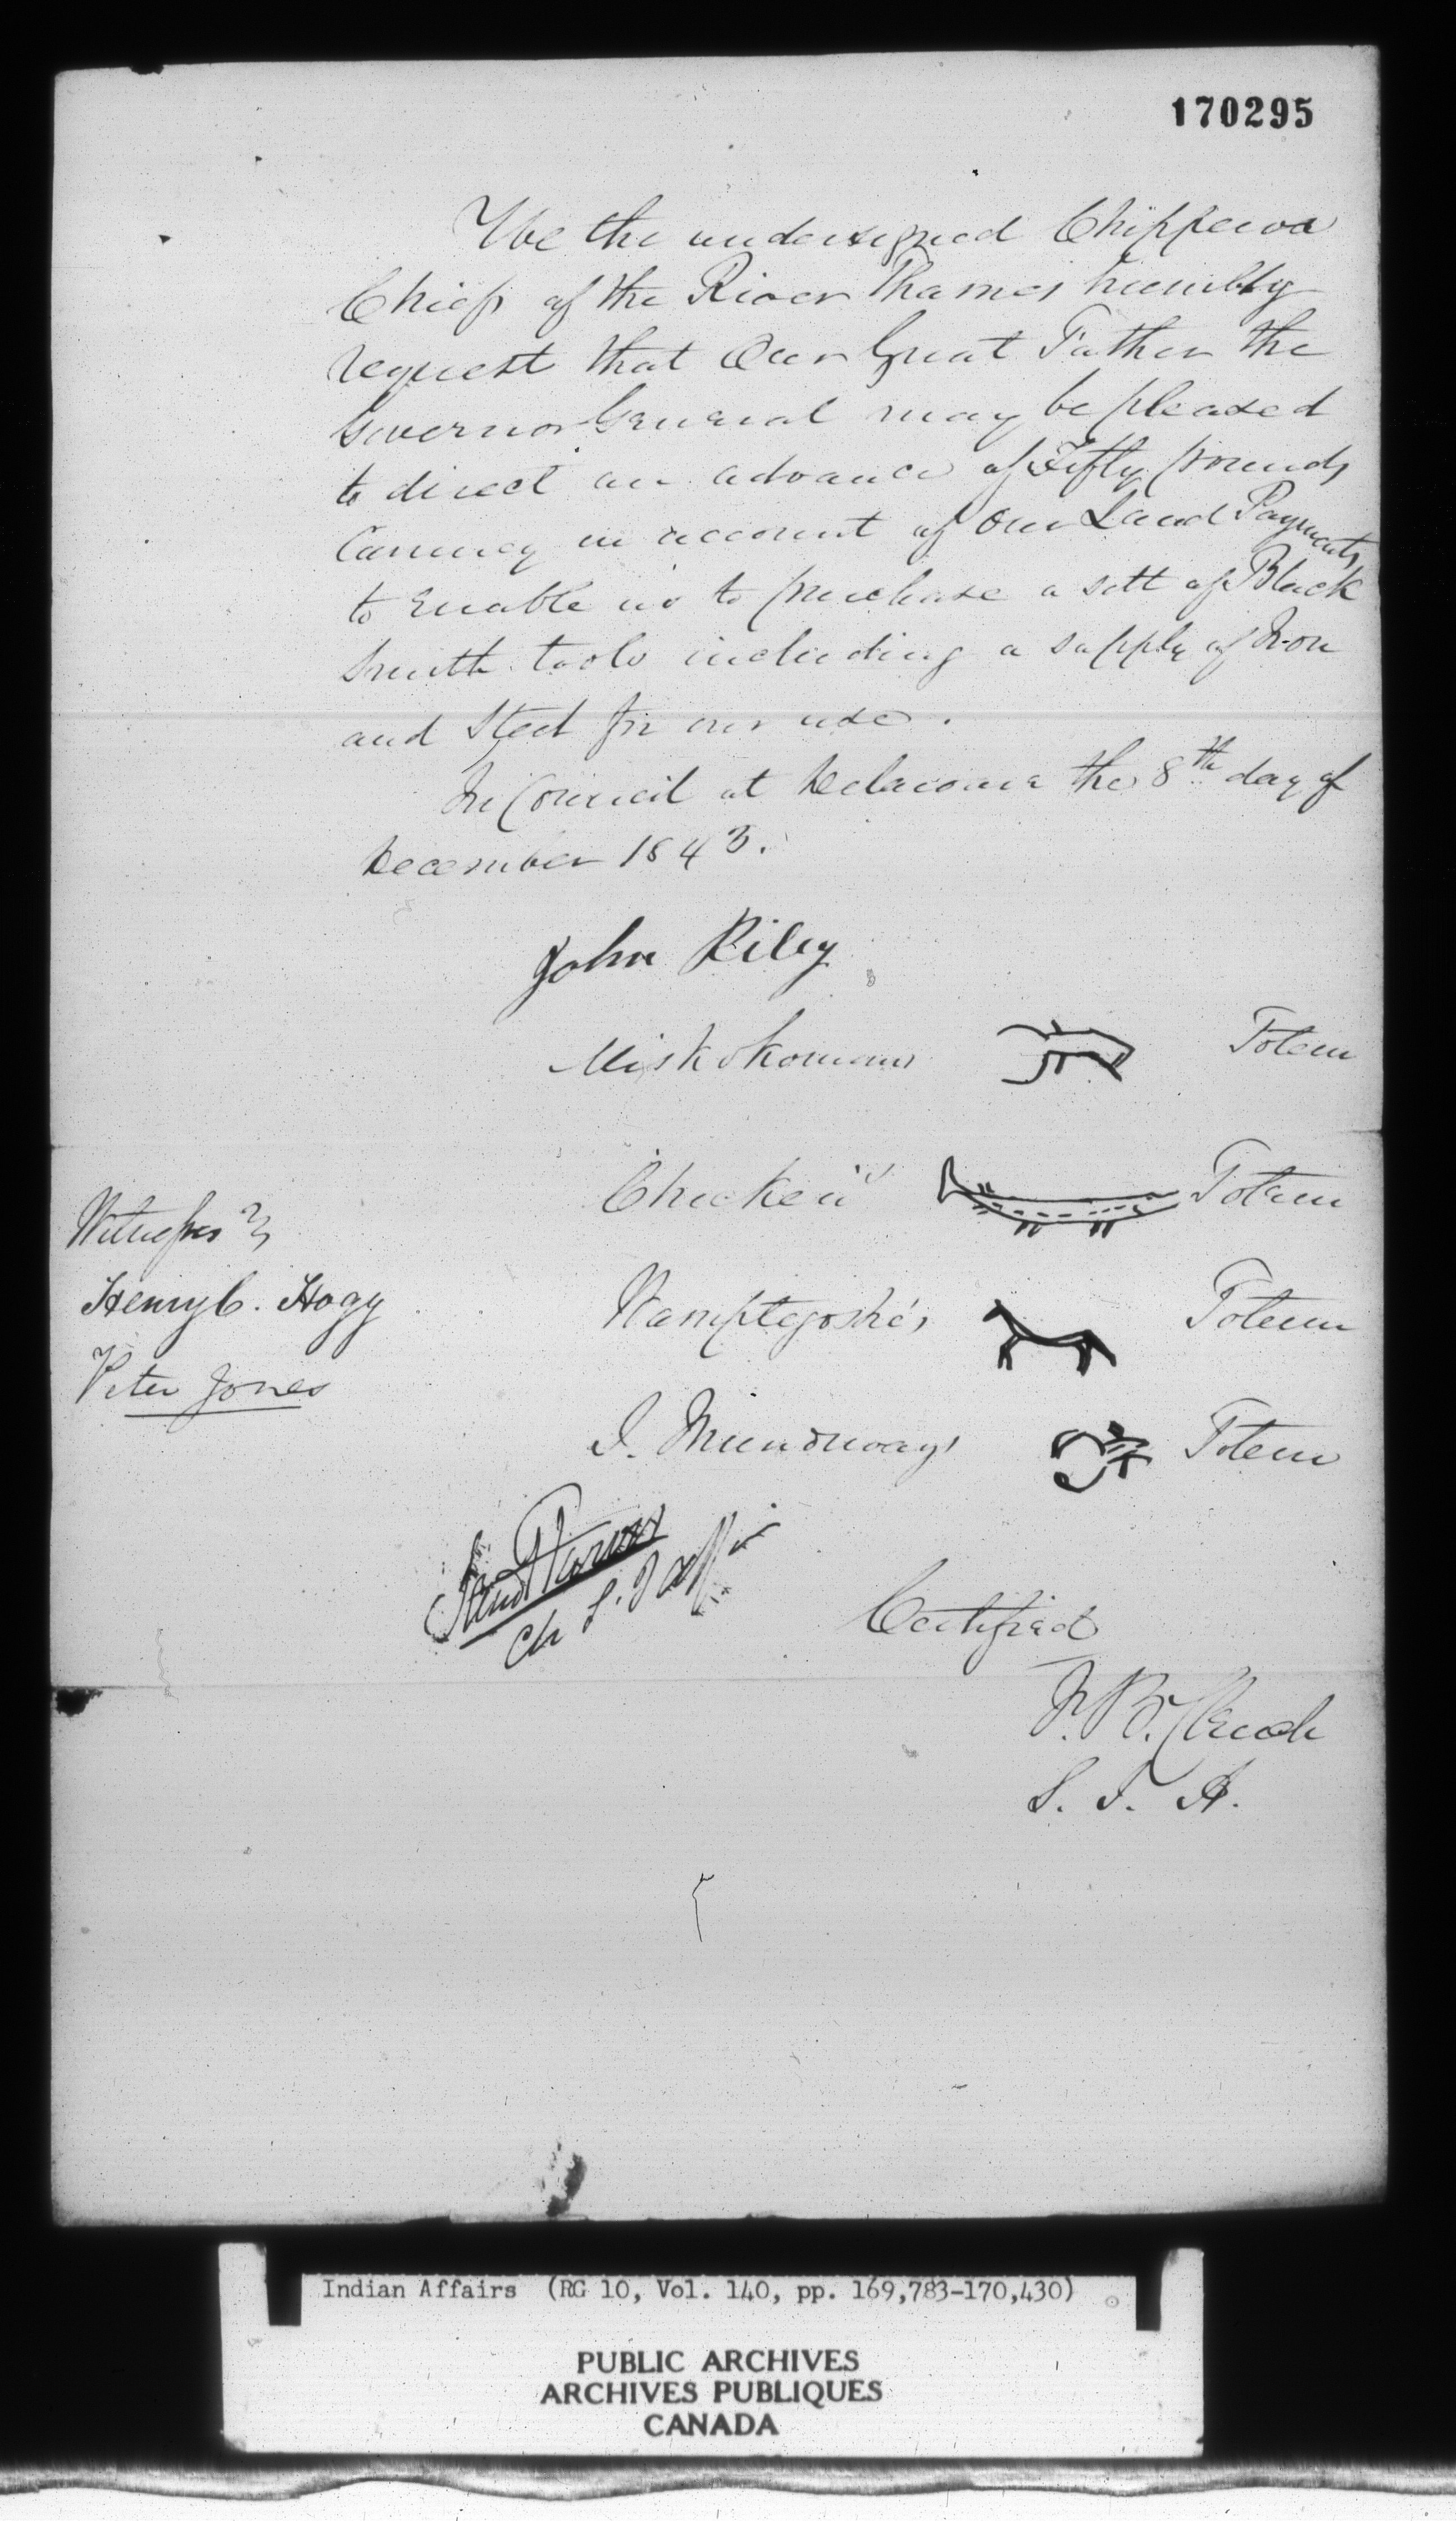 170295
We the undersigned Chippewa
Chiefs of the River Thames humbly
request that Our Great Father the
Governor General may be pleased
to direct an advance of Fifty pounds
Currency on account of Our Land Payments
to enable us to purchase a sett of Black
Smith tools including a supply of Iron
and Steel for our use.
In Council at Delaware the 8th day of
December 1843.
John Riley
Miskokomans Totem
Chicken's Totem
Wamptegoshe's Totem
J. Mundways Totem
Witnesses
Henry C. Hogg
Peter Jones
Certified
J. B. Clench
S. I. A.
Indian Affairs (RG 10, Vol. 140, pp. 169,783-170,430)
PUBLIC ARCHIVES
ARCHIVES PUBLIQUES
CANADA